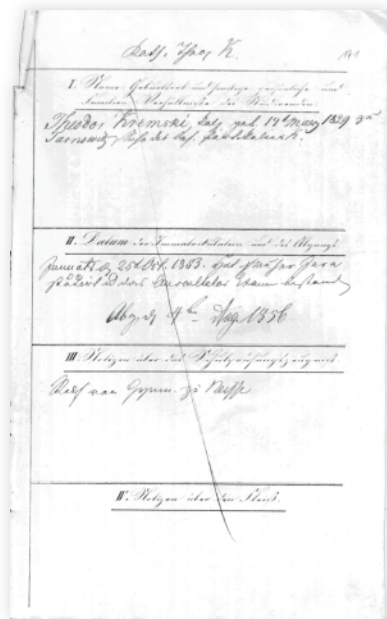 Kath. Theol. K.
I. Name, Geburtsort und sonstige persönliche und
Familien Verhältnisse des Studirenden.
Theodor Kremski, kath, geb. 17t März 1829 zu
Tarnowitz, Sohn des
II. Datum der Immatrikulation und des Abgangs.
Immatr. d. 25t Oct. 1853. Hat
studirt u das Auscultator Examen bestanden
Abg. d. 4ten Aug. 1856
III. Notizen über das Schulprüfungszeugniss
Reif vom Gymn. zu Neisse
IV. Notizen über den Fleiß.